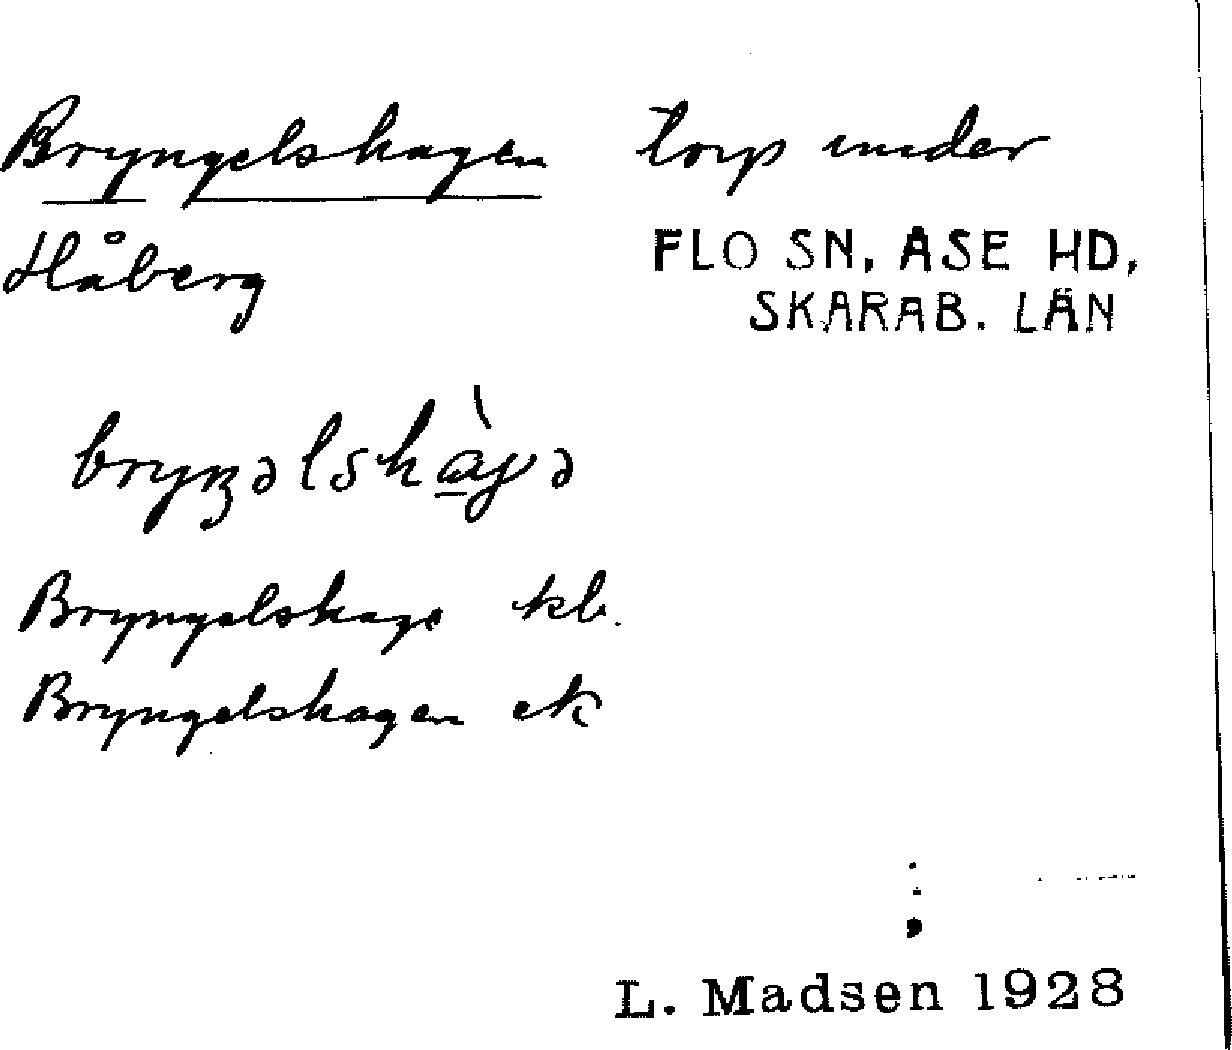 Bryngelshagen torp under
Håberg
FLO SN, ASE HD,
SKARAB. LÄN
Bryngelshage kb.
Bryngelshagen ek
L. Madsen 1928